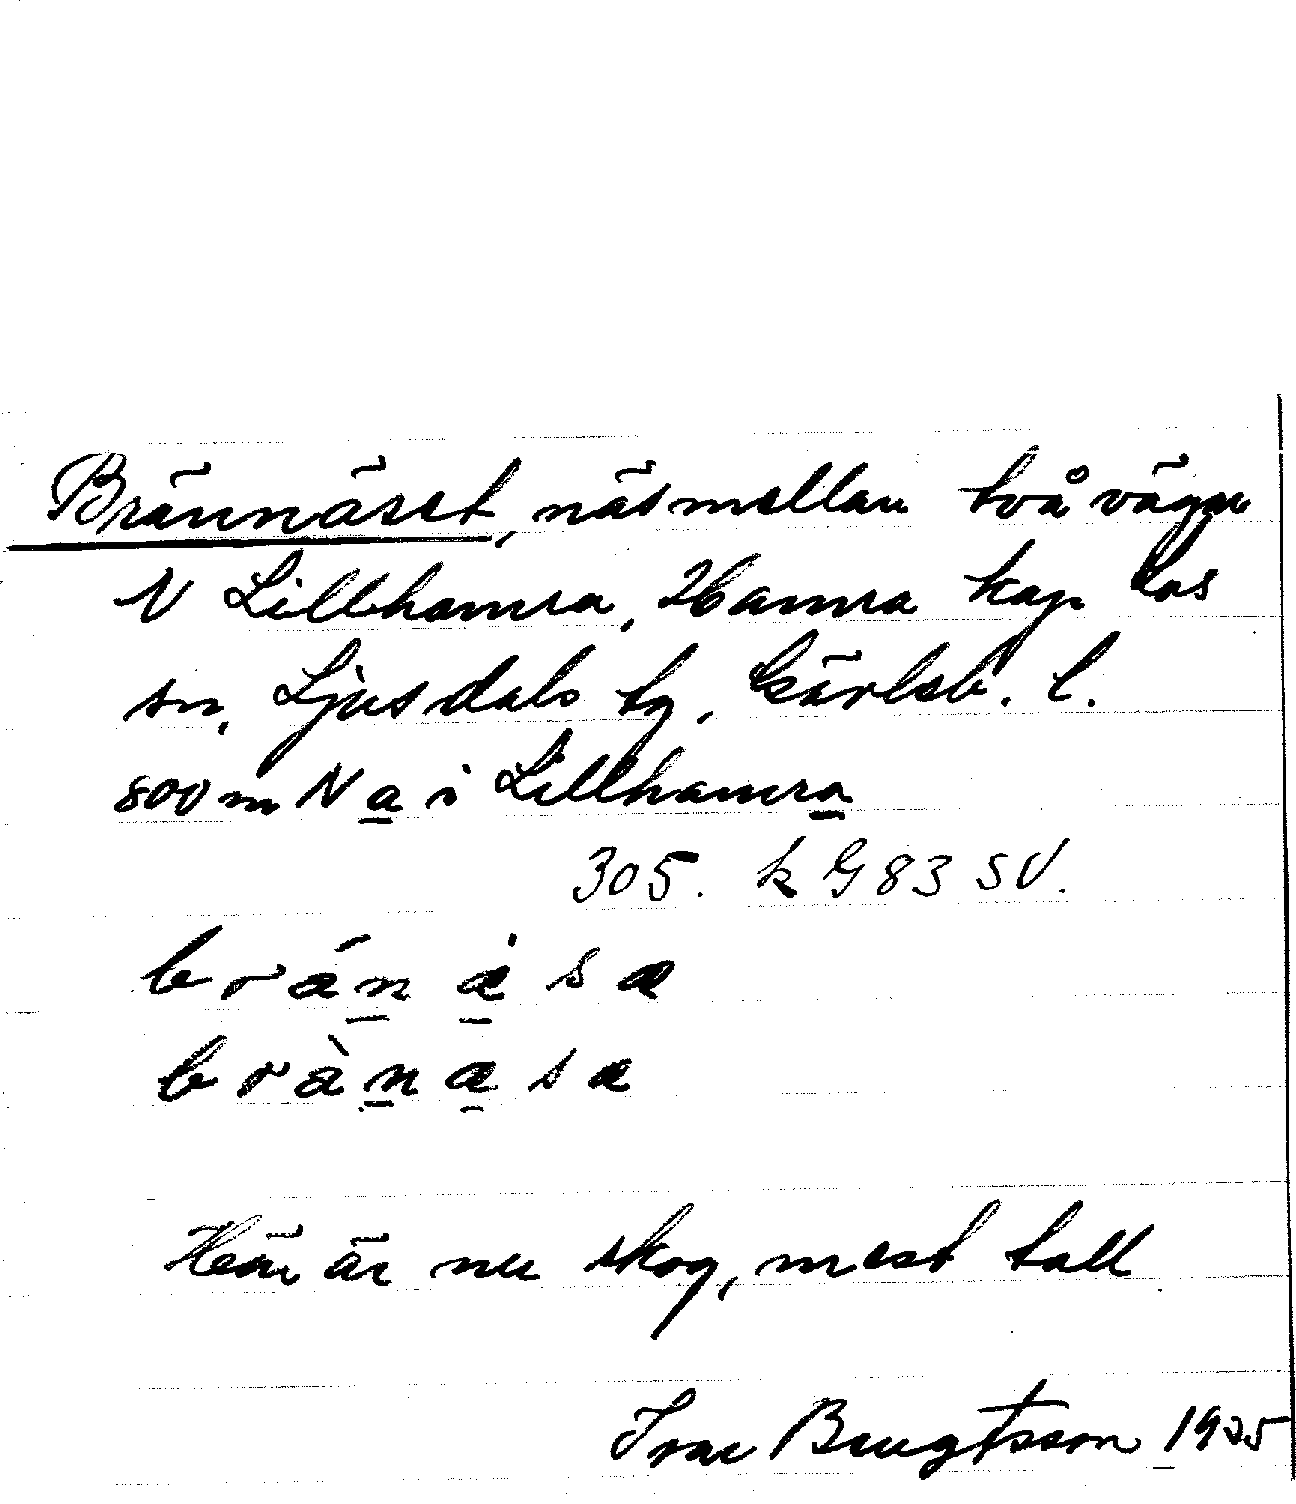 Brännäset, näs mellan två vägar
N Lillhamra, Hamra kap Los
sn, Ljusdals tg, Gävleb. l.
800 m N a i Lillhamra
305. k G 83 SV.
b r á n æ̀ s æ
b r à n æ s æ
Här är nu skog, mest tall
Ivar Bengtsson 1935